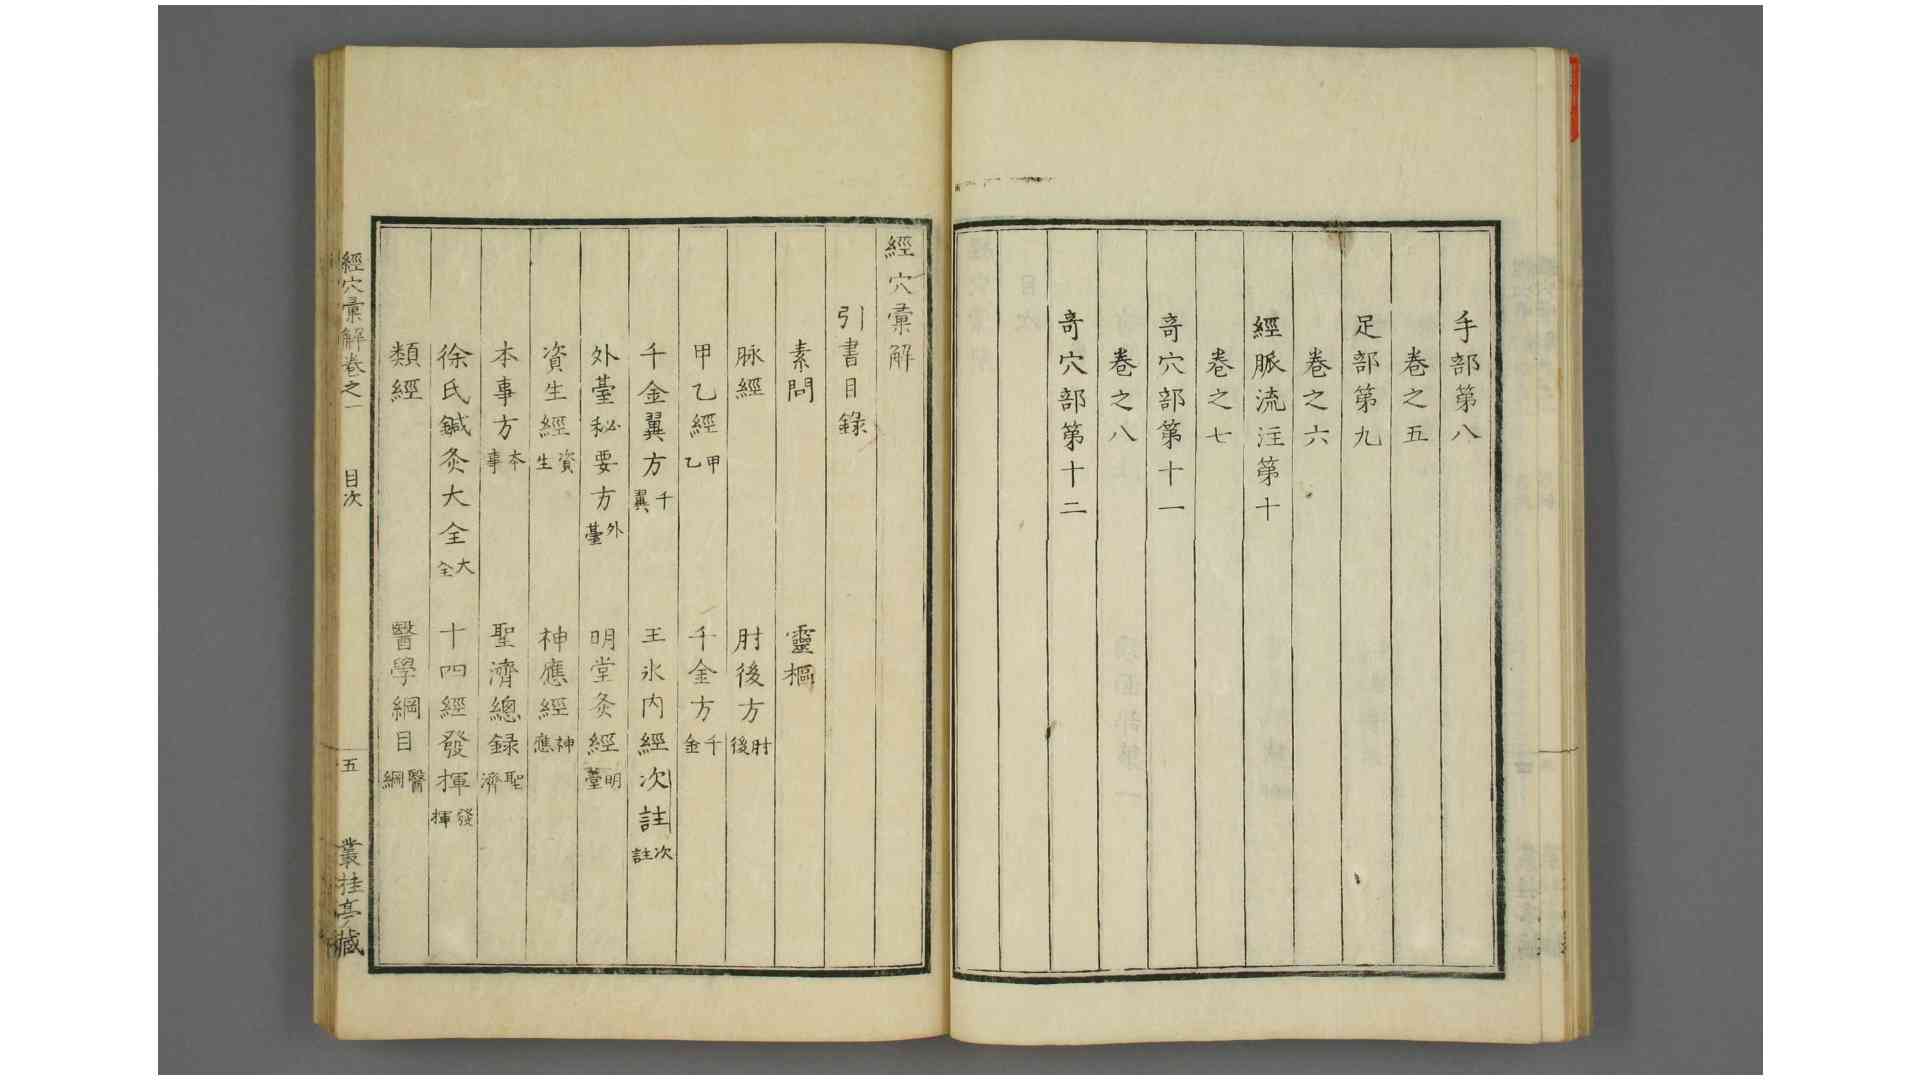 手部第八
卷之五
足部第九
卷之六
經脈流注第十
卷之七
竒穴部第十一
卷之八
竒穴部第十二
經穴彙解
引書目錄
素問 靈樞
脉經 肘後方 肘後
甲乙經 甲乙 千金方 千金
千金翼方 千翼 王氷內經次註 次註
外臺秘要方 外臺 明堂灸經 明臺
資生經 資生 神應經 神應
本事方 本事 聖濟總録 聖濟
徐氏鍼灸大全 大全 十四經發揮 發揮
類經 醫學綱目 醫綱
經穴彙解卷之一 目次 五 叢桂亭藏